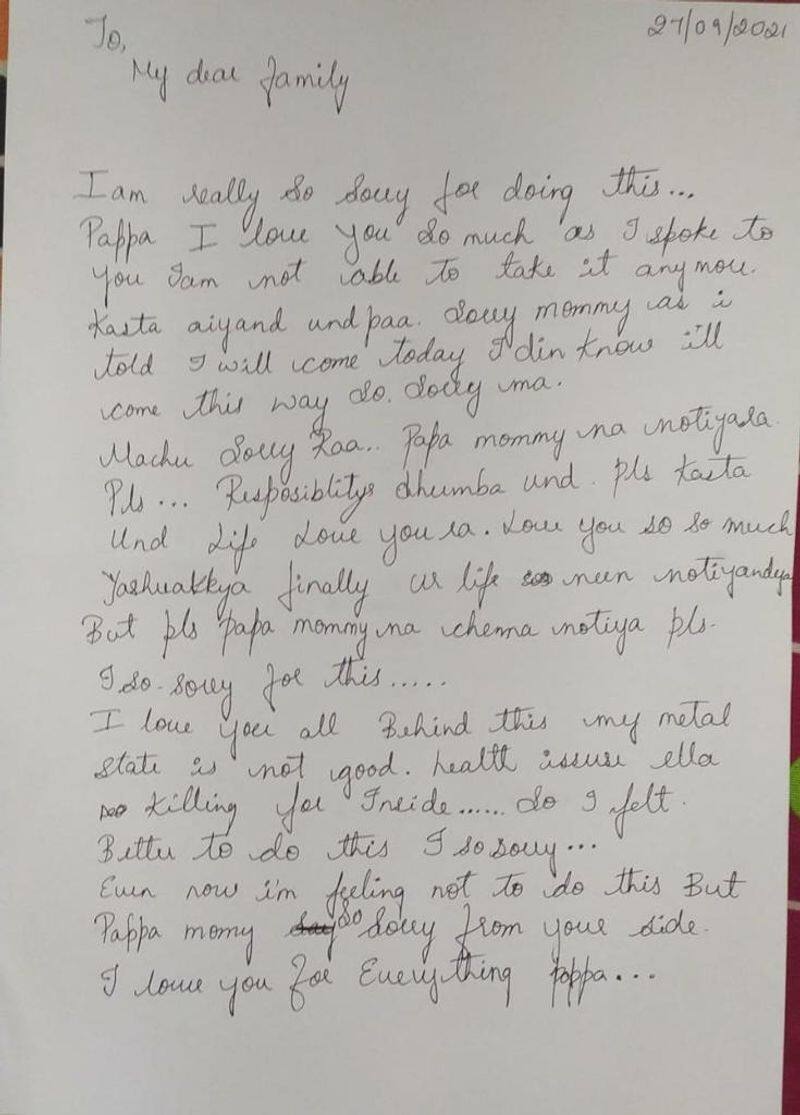 27/09/2021
To,
My dear family
I am really so sorry for doing this...
Pappa I love you so much as I spoke to
you I am not able to take it anymore.
Kasta aiyand und paa. Sorry mommy as i
told I will come today I din know ill
come this way so. Sorry ma.
Machu Sorry Raa.. Papa mommy na notiyala.
Pls ... Resposiblitys dhumba und. pls Kasta
Und Life Love you ra. Love you so so much
Yashuakkya finally ur life neen notiyandya
But pls papa mommy na chenna notiya pls.
I so. sorry for this.....
I love you all Behind this my metal
state is not good. health issuse ella
killing for Inside...... So I felt.
Better to do this I so sorry...
Even now i'm feeling not to do this But
Pappa momy so Sorry from your side.
I love you for Everything pappa...